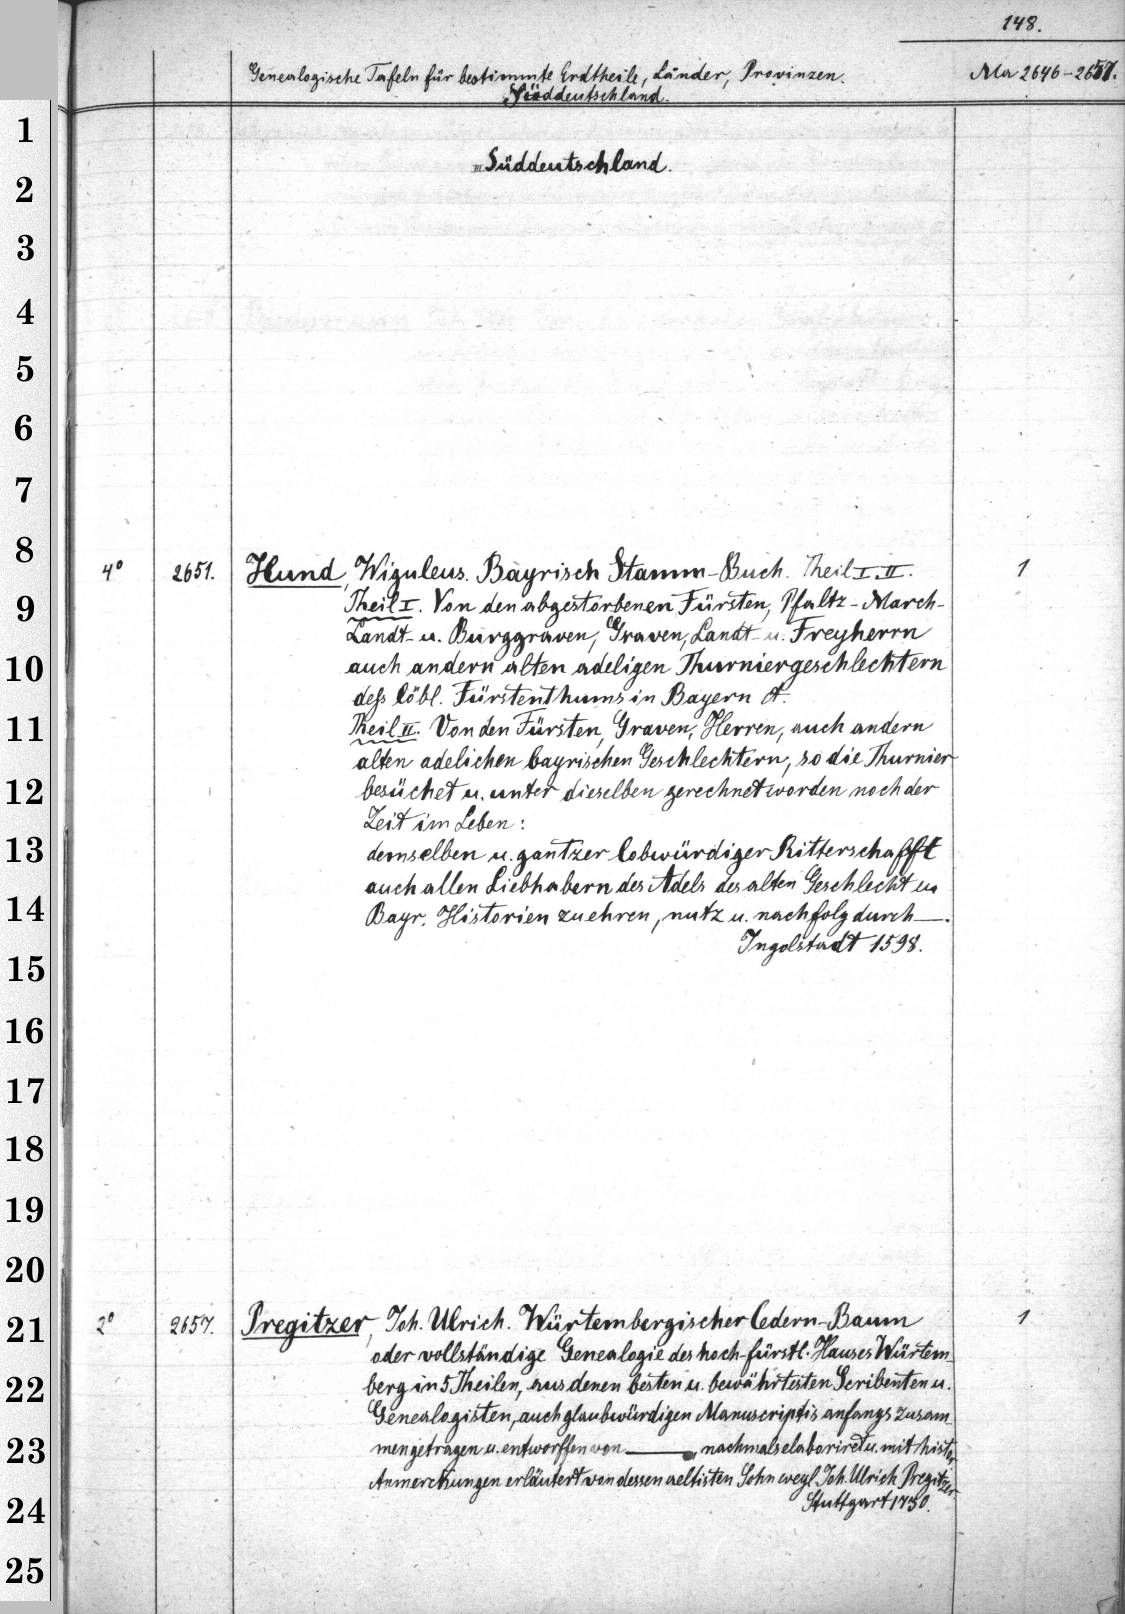 148.
Genealogische Tafeln für bestimmte Erdtheile, Länder, Provinzen.
Ma 2646-2657.
Süddeutschland.
1
Süddeutschland.
2
3
4
5
6
7
8
4° 2651. Hund, Wiguleus. Bayrisch Stamm-Buch. Theil I. II. 1
9 Theil I. Von den abgestorbenen Fürsten, Pfaltz-March-
Landt- u. Burggraven, Graven, Landt- u. Freyherrn
10 auch andern alten adeligen Thurniergeschlechtern
deß löbl. Fürstenthums in Bayern &.
11 Theil II. Von den Fürsten, Graven, Herren, auch andern
alten adelichen bayrischen Geschlechtern, so die Thurnier
12 besüchet u. unter dieselben gerechnet worden noch der
Zeit im Leben:
13 demselben u. gantzer lobwürdiger Ritterschafft
auch allen Liebhabern des Adels des alten Geschlecht u
14 Bayr. Historien zu ehren, nutz u. nachfolg durch —.
Ingolstadt 1598.
15
16
17
18
19
20
21 2° 2657. Pregitzer, Joh. Ulrich. Würtembergischer Cedern-Baum 1
oder vollständige Genealogie des hoch-fürstl. Hauses Würtem-
22 berg in 5 Theilen, aus denen besten u. bewährtesten Scribenten u.
Genealogisten, auch glaubwürdigen Manuscriptis anfangs zusam-
23 mengetragen u. entworffen von —, nachmals elaboriret u. mit histor.
Anmerckungen erläutert von dessen aeltisten Sohn weyl. Joh. Ulrich Pregitzer
24 Stuttgart 1730.
25